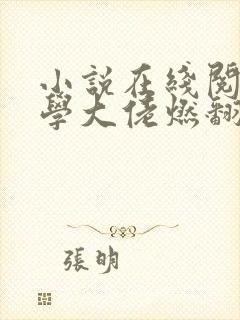 小說在綫閱
學大佬燃翻
張明